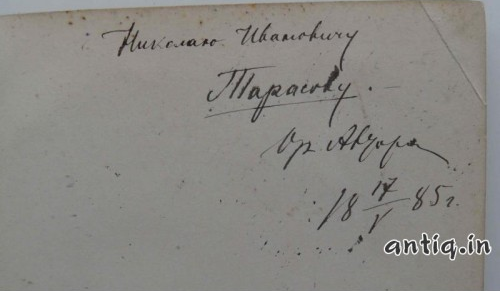 Николаю Ивановичу
Тарасову.
От Автора
18 17/V 85 г.
antiq.in